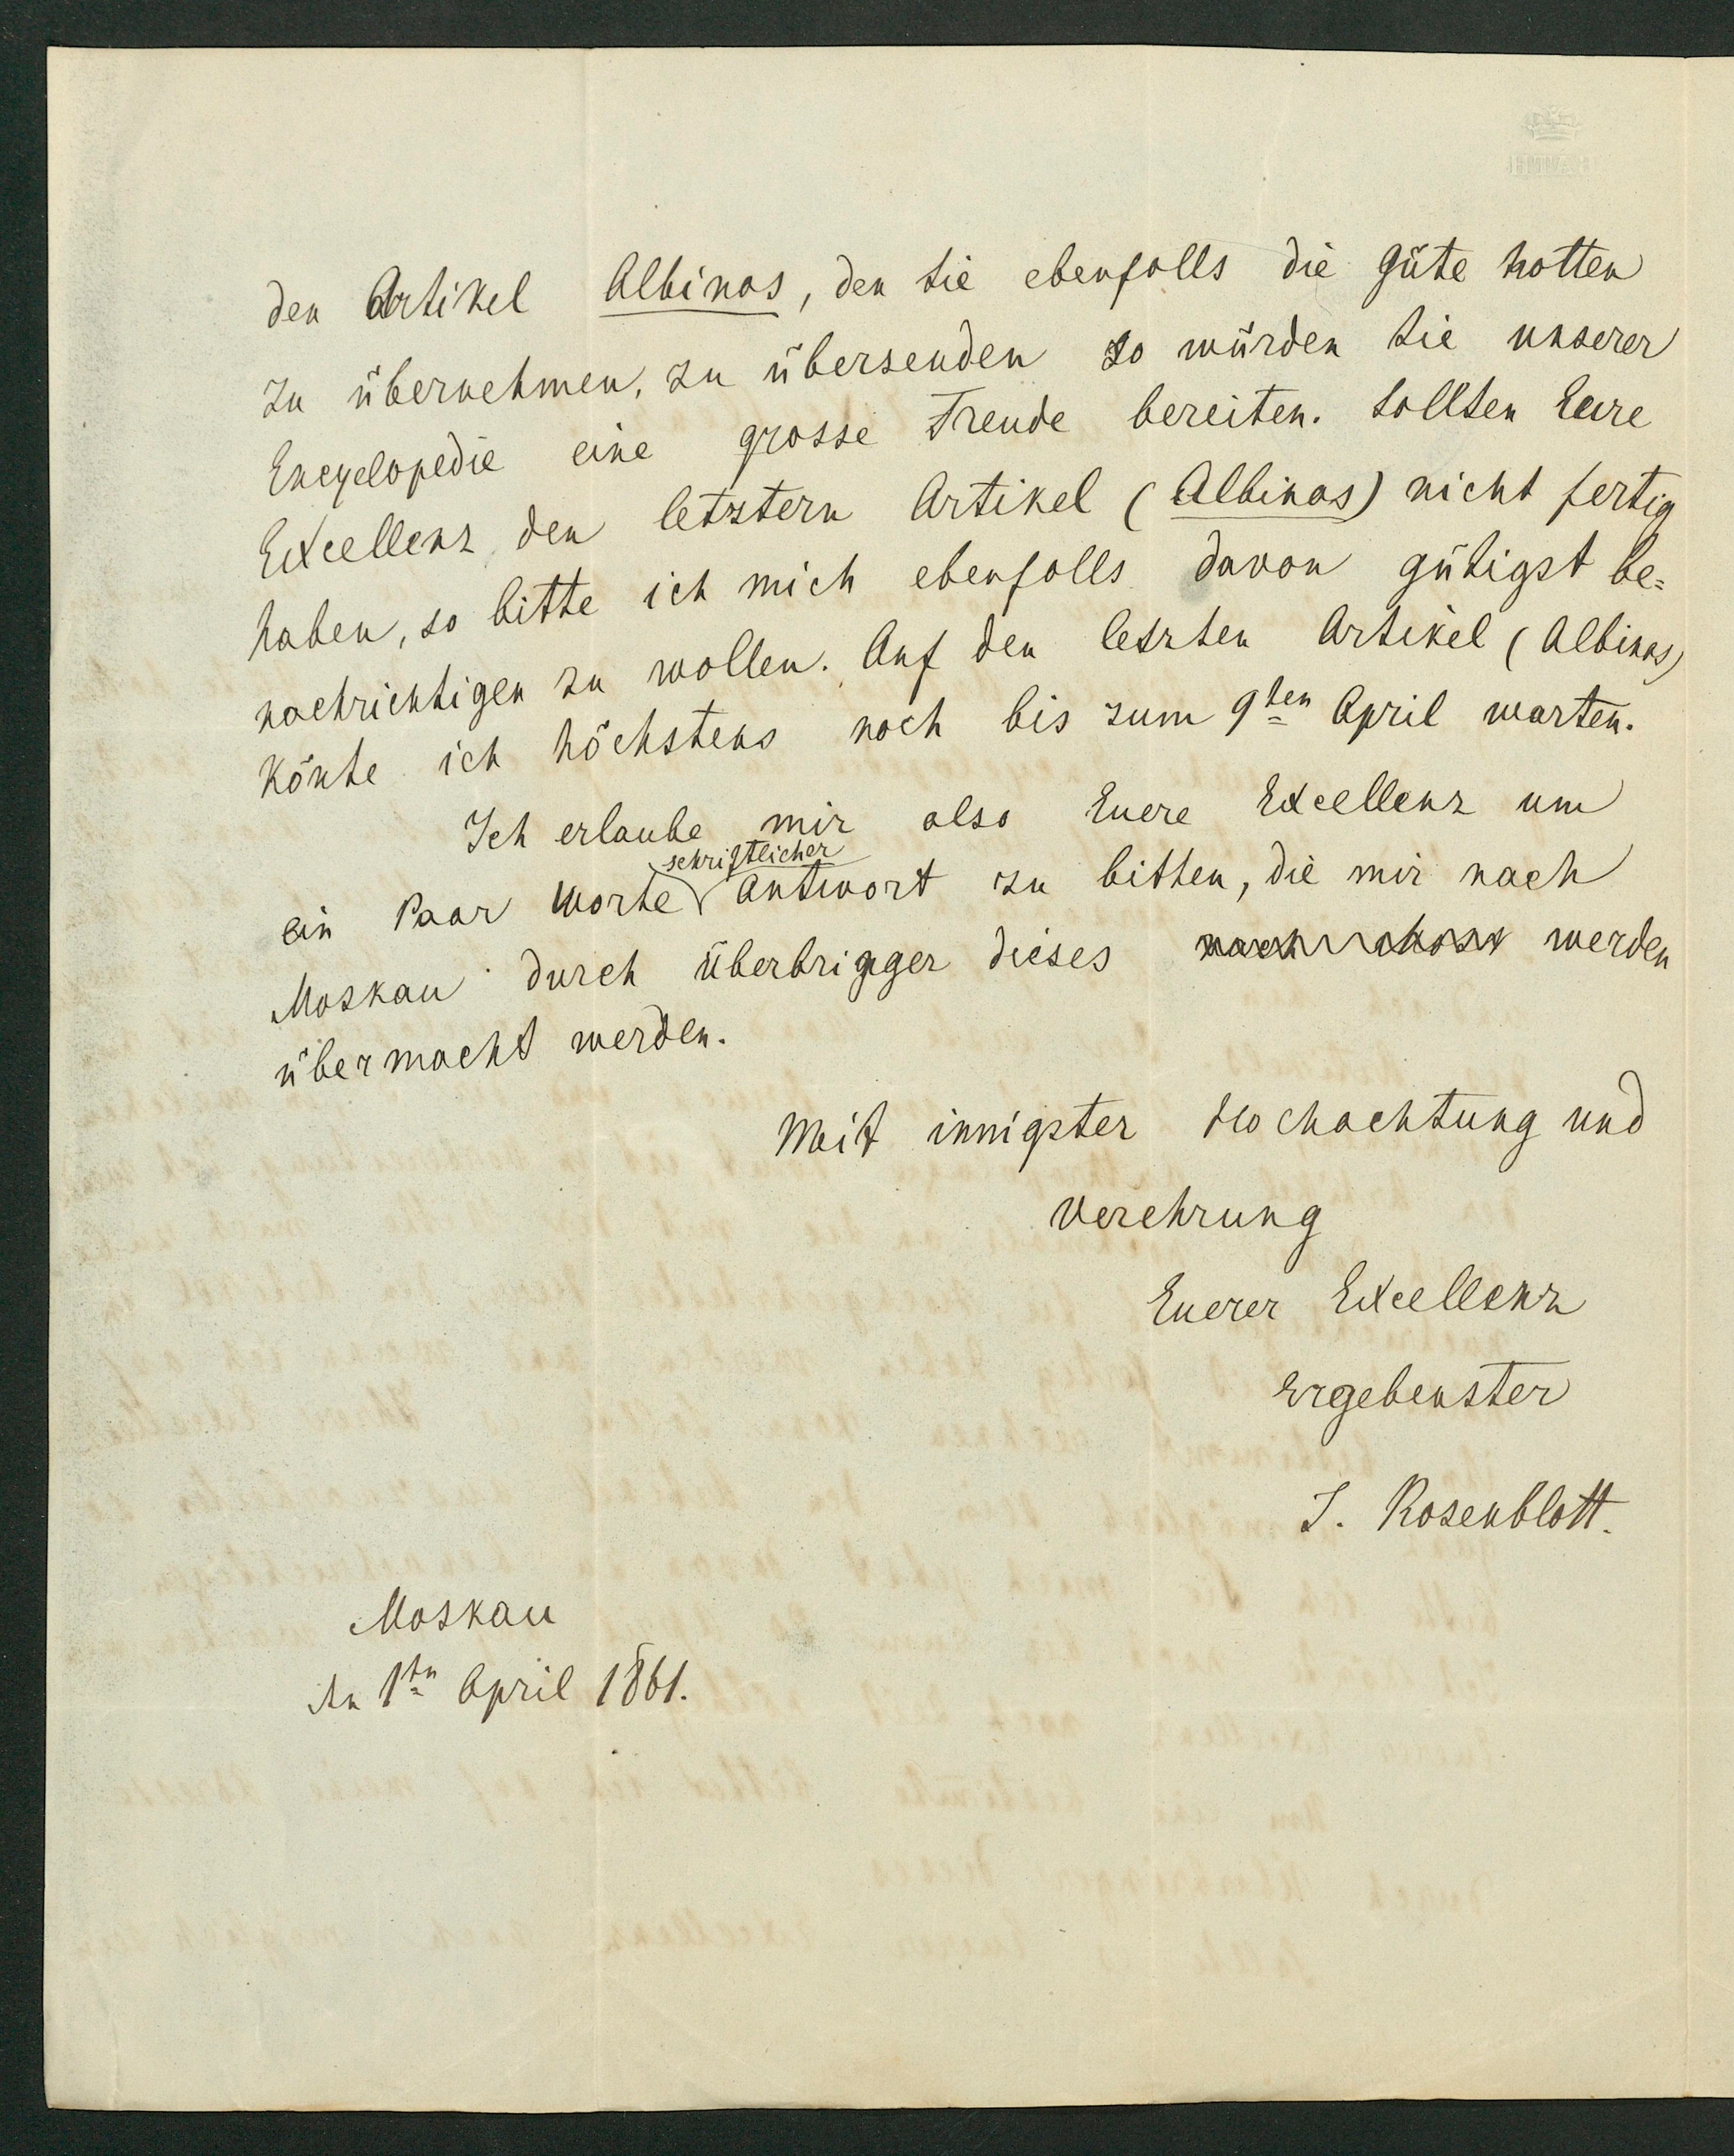 den Artikel Albinos, den Sie ebenfalls die Güte hatten
zu übernehmen, zu übersenden so würden Sie unserer
Encyclopedie eine grosse Freude bereiten. Sollten Eure
Excellenz den letztern Artikel (Albinos) nicht fertig
haben, so bitte ich mich ebenfalls davon gütigst be=
nachrichtigen zu wollen. Auf den letzten Artikel (Albinos)
könte ich höchstens noch bis zum 9ten April warten.
Ich erlaube mir also Euere Excellenz um
schriftlicher
ein Paar Worte Antwort zu bitten, die mir nach
Moskau durch Überbringer dieses werden
übermacht werden.
Mit innigster Hochachtung und
Verehrung
Euerer Excellenz
Ergebenster
J. Rosenblatt.
Moskau
den 1ten April 1861.